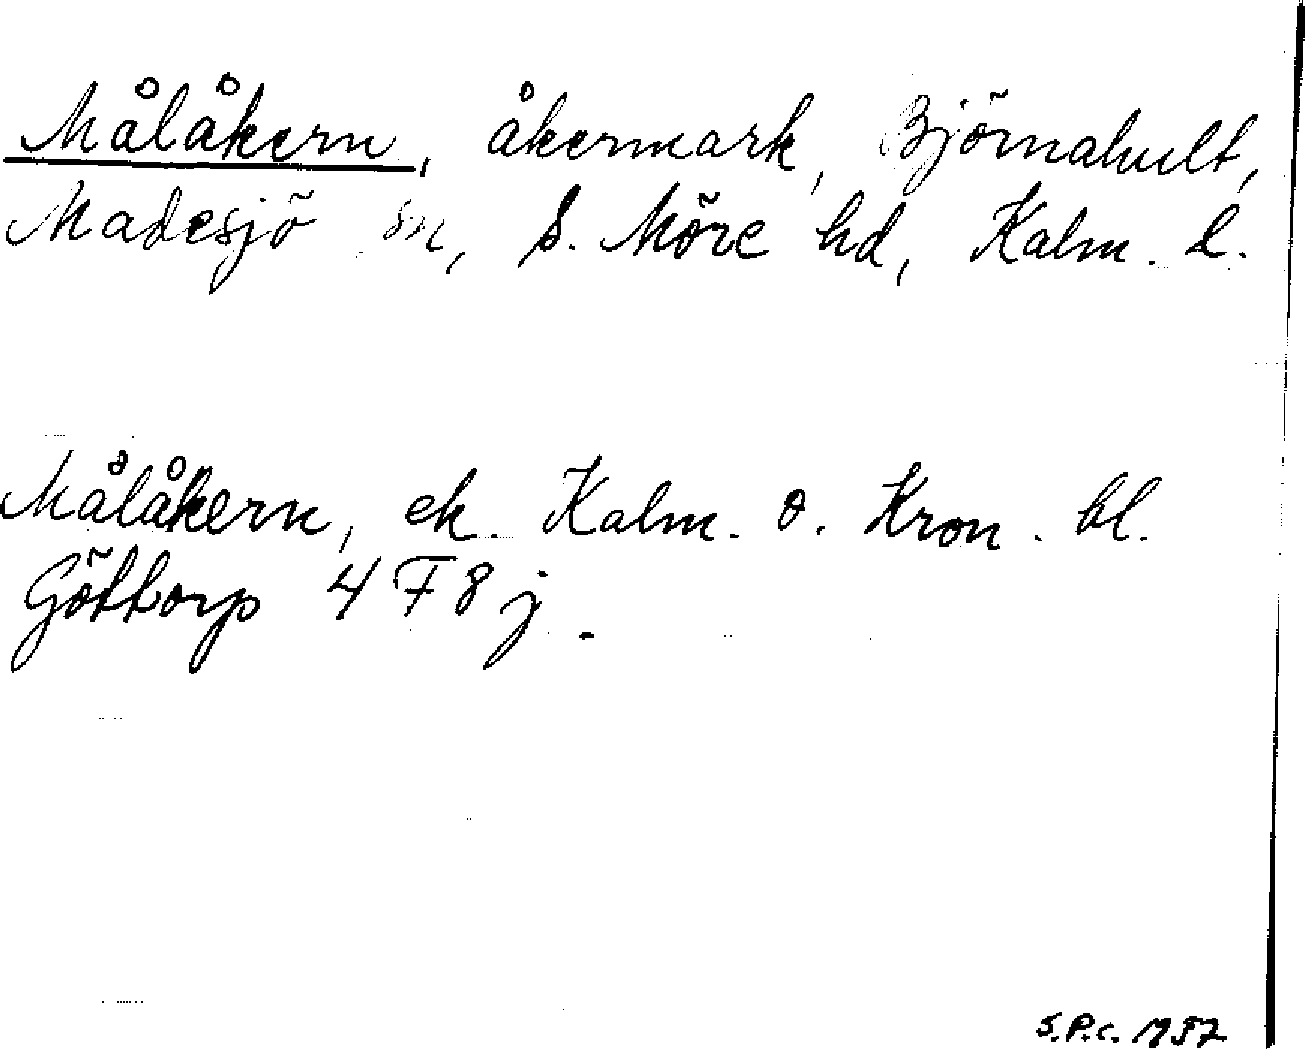 Målåkern, åkermark, Björnahult,
Madesjö sn, S. Möre hd, Kalm. l.
Målåkern, ek. Kalm. o. Kron. bl.
Göttorp 4 F 8 j.
S.P.C. 1957